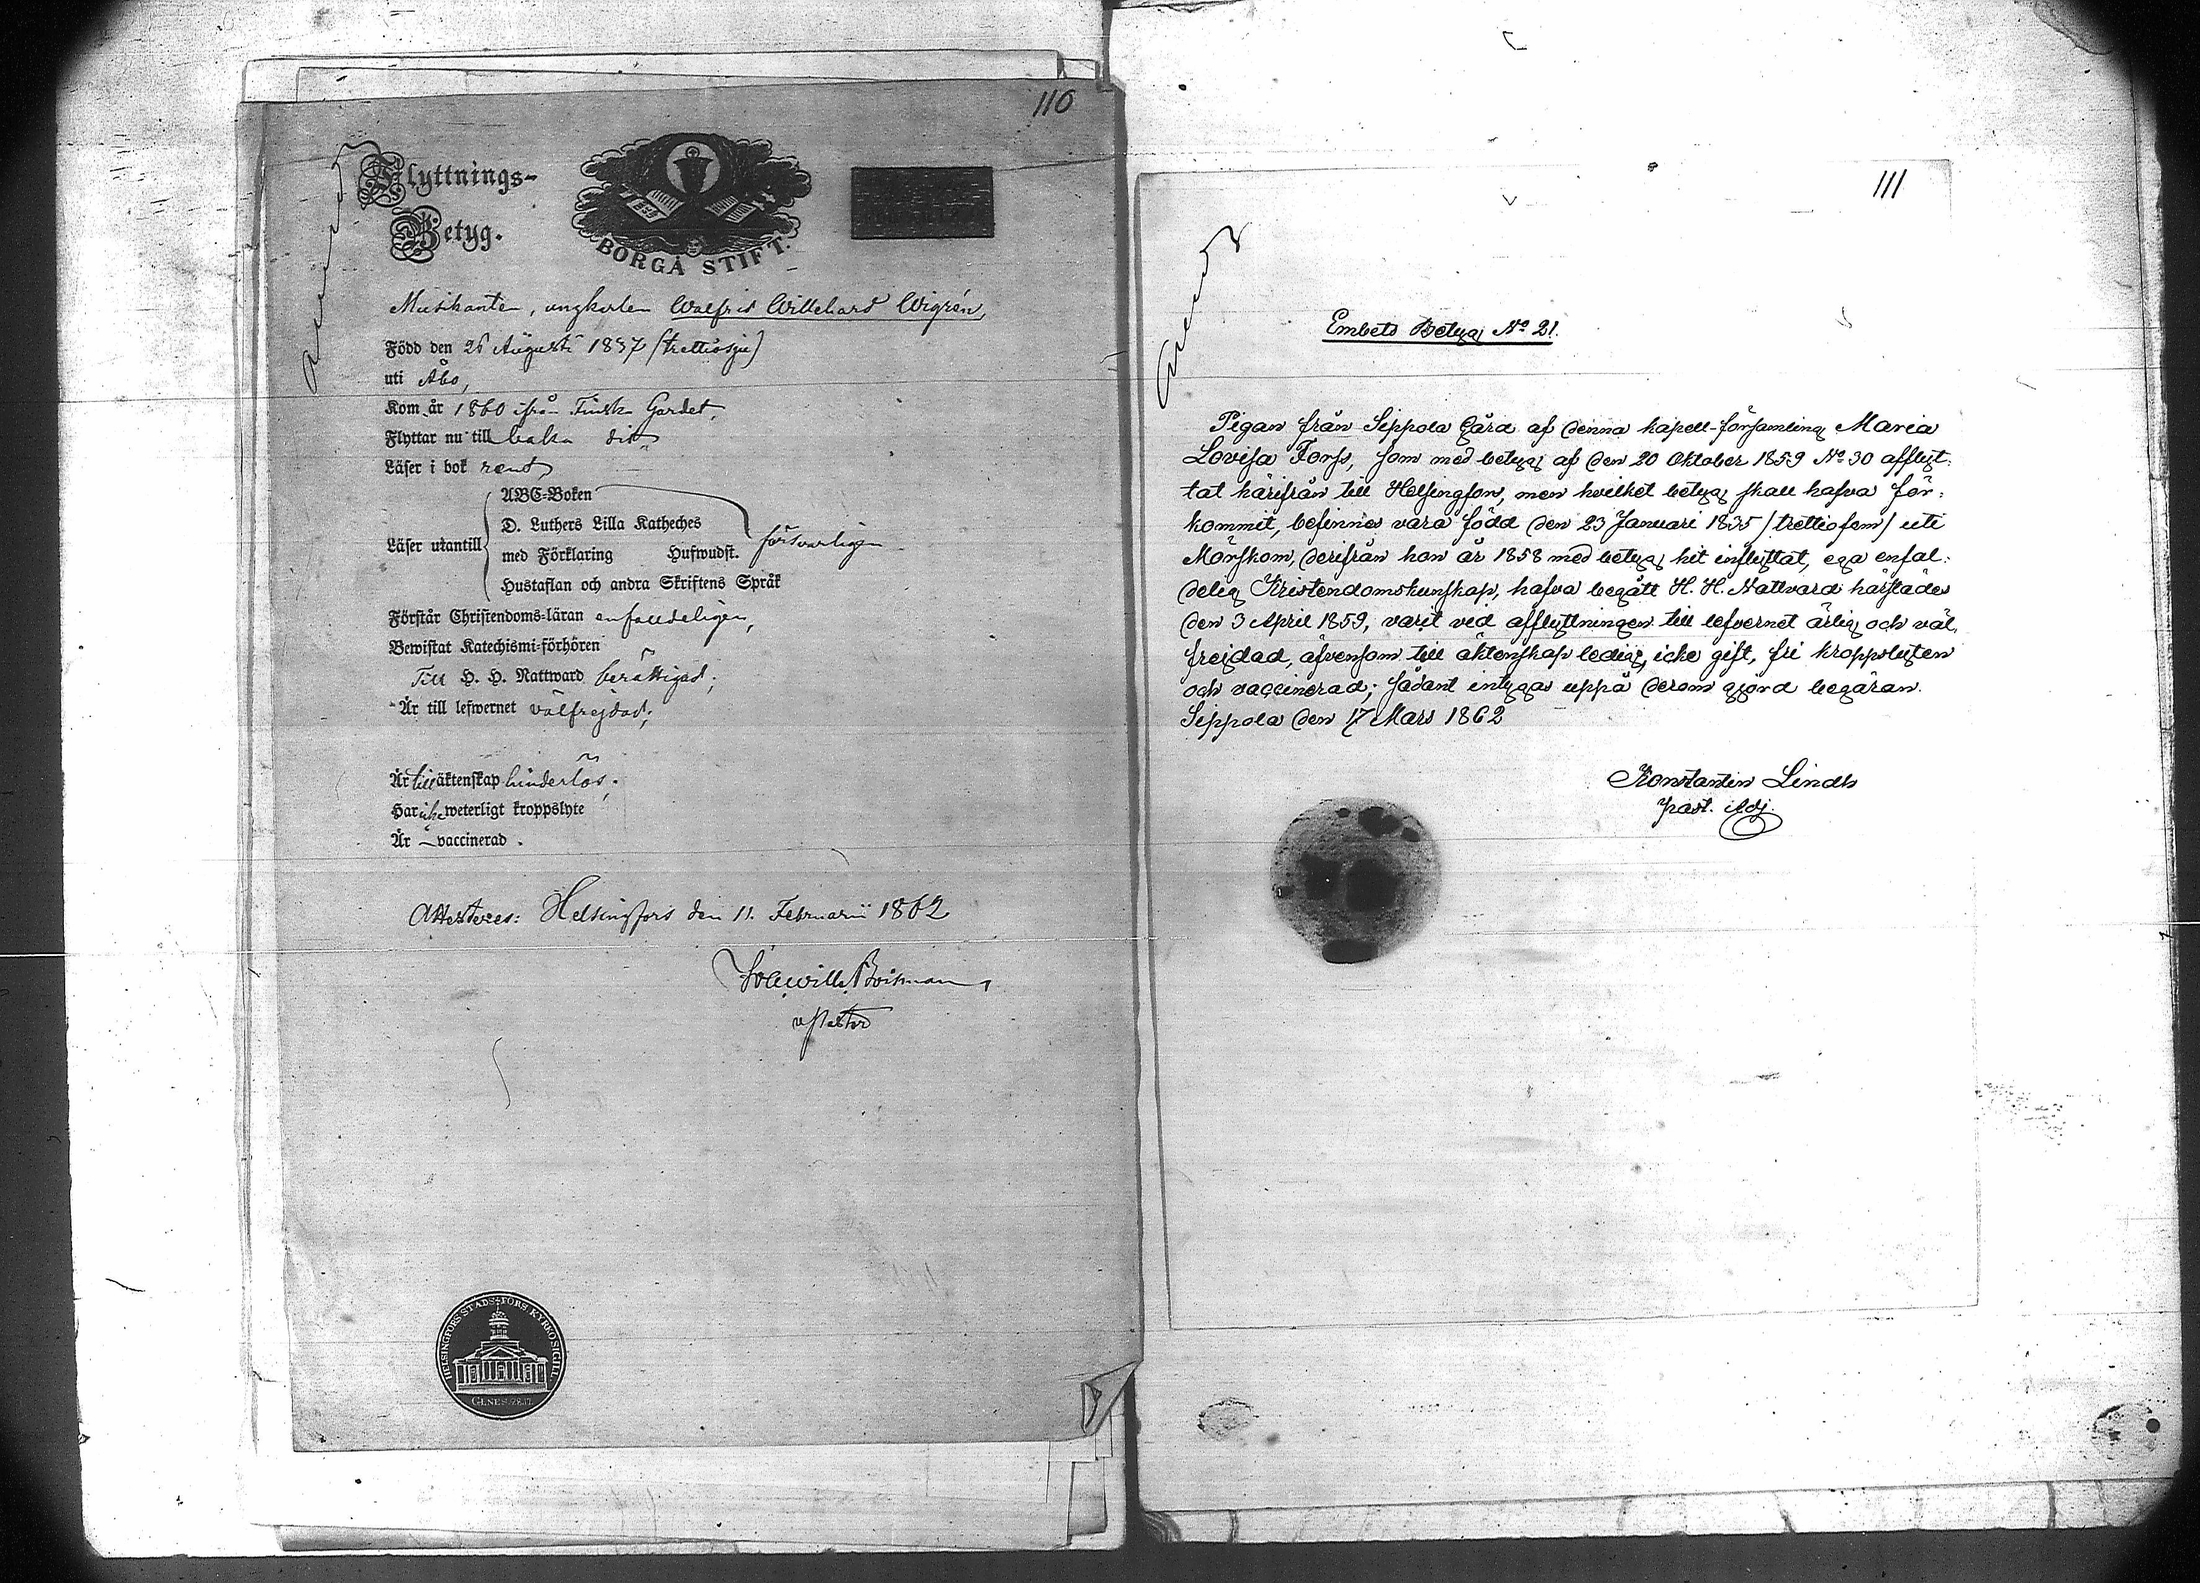 110
Flyttnings-
Betyg.
BORGÅ STIFT.
Musikanten, ungkarlen Walfrid Willehard Wigrén,
Född den 25 Augusti 1837 (trettiosju)
uti Åbo,
Kom år 1860 ifrån Finska Gardet,
Flyttar nu till baka dit
Läser i bok rent,
ABC-Boken
D. Luthers Lilla Katheches
Läser utantill med Förklaring Hufwudst. försvarligen
Hustaflan och andra Skriftens Språk
Förstår Christendoms-läran enfaldeligen,
Bewistat Katechismi-förhören
Till H. H. Nattward berättigad;
Är till lefwernet välfrejdad;
Är till äktenskap hinderlös.
Har icke weterligt kroppslyte
Är vaccinerad.
Attesteres: Helsingfors den 11. Februarii 1862
v Pastor
HELSINGFORS STADS FÖRS. KYRKO SIGILL.
111
Embets Betyg No 21.
Pigan från Sippola Gård af denna kapell-församling Maria
Lovisa Forss, som med betyg af den 20 Oktober 1859 No 30 afflyt-
tat härifrån till Helsingfors, men hvilket betyg skall hafva för-
kommit, befinnes vara född den 23 Januari 1835 /trettiofem/ uti
Mörskom, derifrån hon år 1858 med betyg hit inflyttat, ega enfal-
delig Kristendomskunskap, hafva begått H. H. Nattvard härstädes
den 3 April 1859, varit vid afflyttningen till lefvernet ärlig och väl-
frejdad, äfvensom till äktenskap ledig, icke gift, fri kroppslyten
och vaccinerad; sådant intygas uppå derom gjord begäran.
Sippola den 17 Mars 1862
Konstantin Lindh
past. adj.